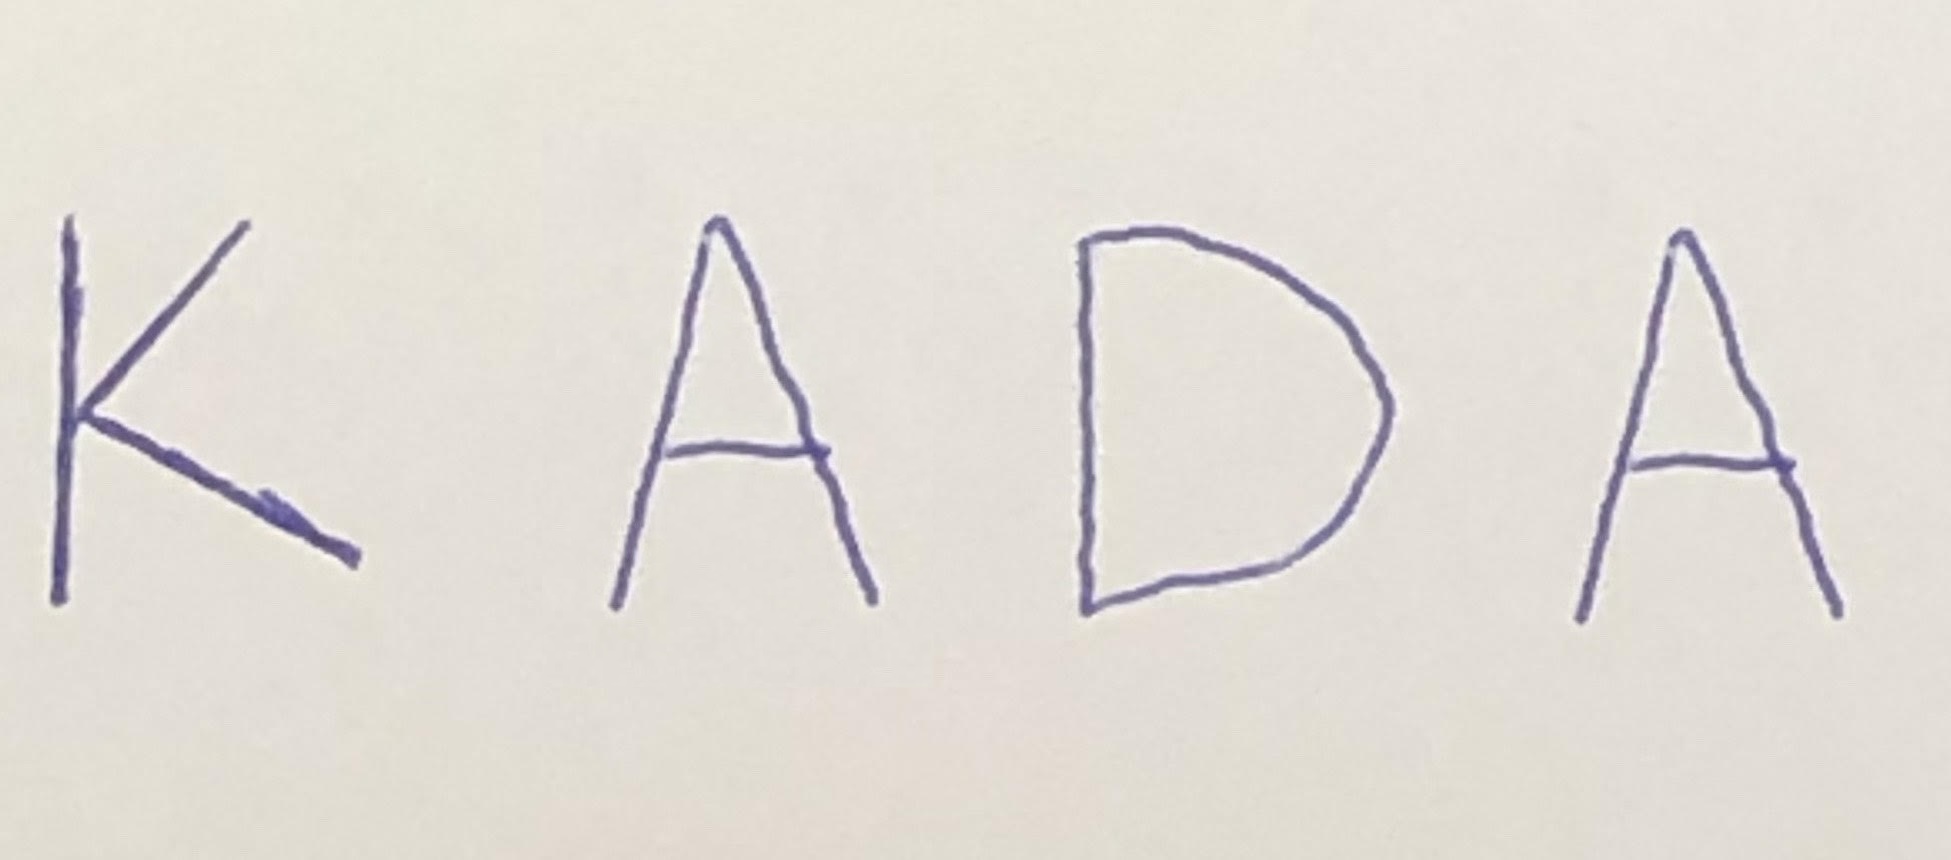 K A D A